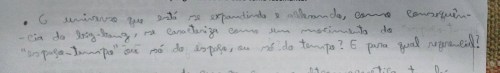 • O universo que está se expandindo e acelerando, como consequên-
cia do big-bang, se caracteriza como um movimento do
"espaço-tempo" ou só do espaço, ou só do tempo? E para qual referencial?